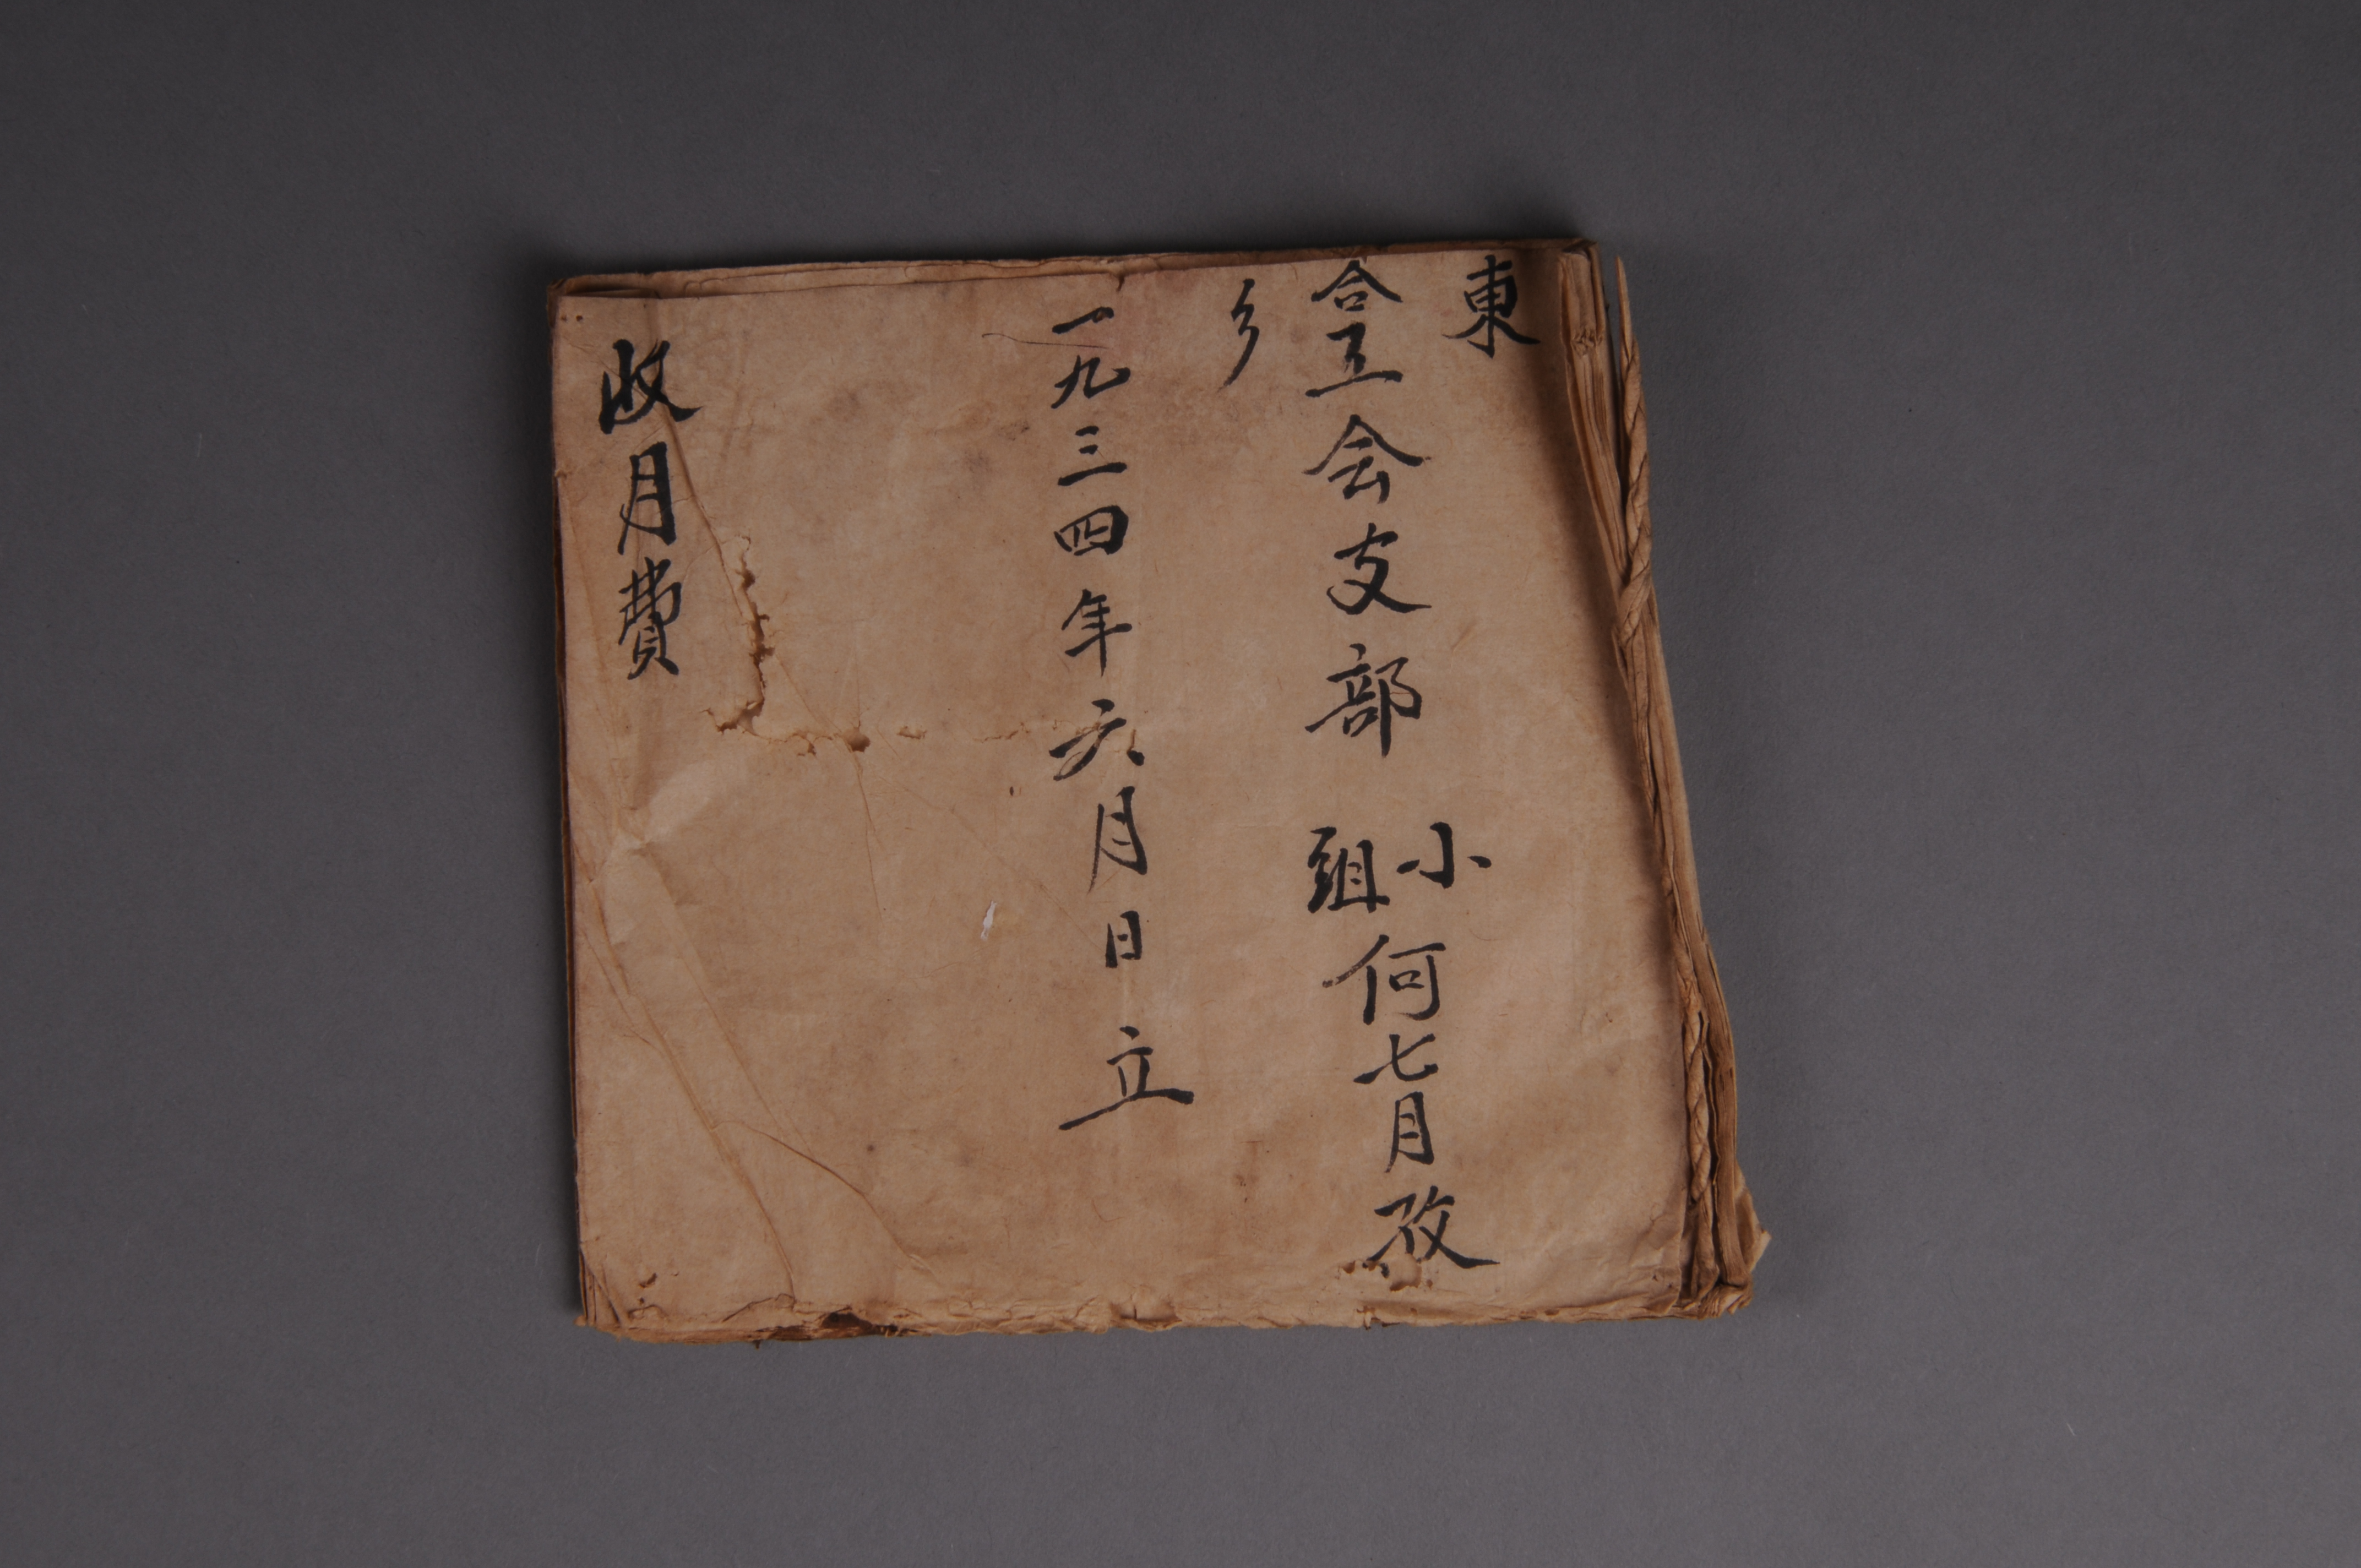 東合乡工会支部小組何七月孜
一九三四年六月日立
收月費